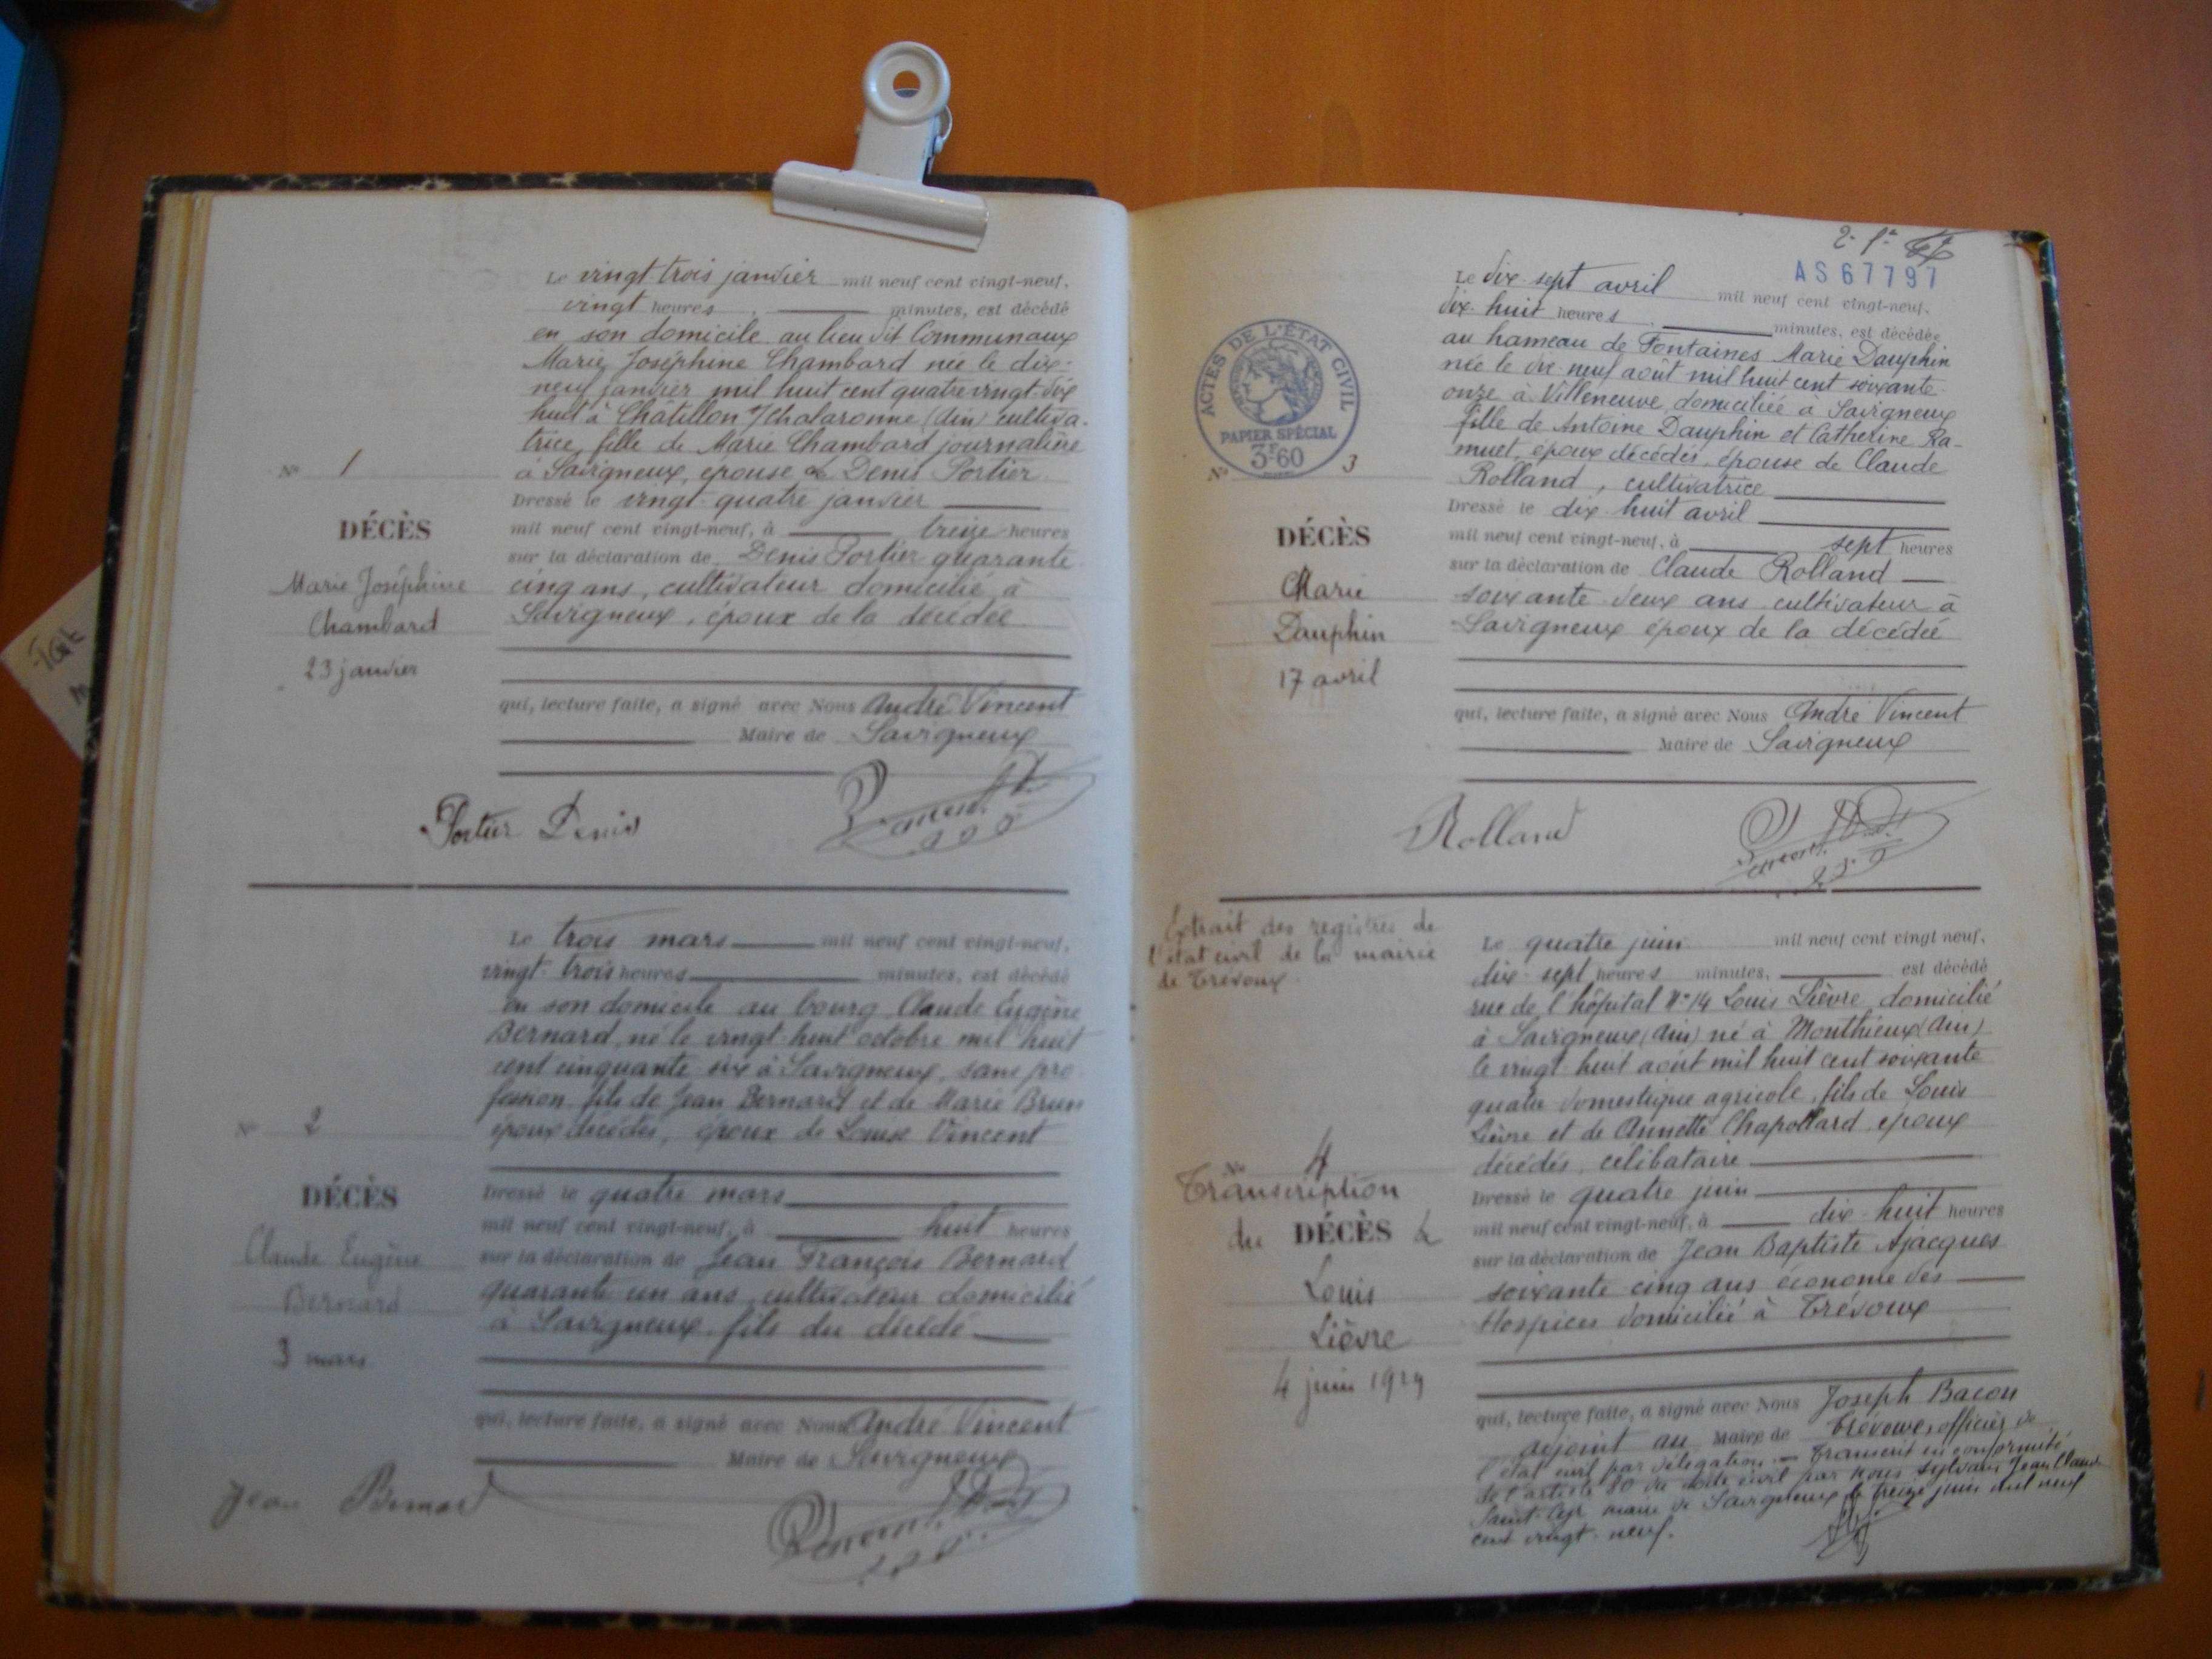 Le vingt-trois janvier mil neuf cent vingt-neuf,
vingt heures minutes, est décédé
en son domicile au lieu dit Communaux
Marie Joséphine Chambard née le dix-
neuf janvier mil huit cent quatre vingt-dix
huit à Châtillon s/Chalaronne (Ain) cultiva-
trice, fille de Marie Chambard journalière
à Savigneux, épouse de Denis Portier
N° 1
Dressé le vingt-quatre janvier
mil neuf cent vingt-neuf, à treize heures
sur la déclaration de Denis Portier quarante
cinq ans, cultivateur domicilié à
Savigneux, époux de la décédée
DÉCÈS
Marie Joséphine
Chambard
23 janvier
qui, lecture faite, a signé avec Nous André Vincent
Maire de Savigneux
Portier Denis
Le trois mars mil neuf cent vingt-neuf,
vingt-trois heures minutes, est décédé
en son domicile au bourg Claude Eugène
Bernard, né le vingt-huit octobre mil huit
cent cinquante-six à Savigneux, sans pro
fession fils de Jean Bernard et de Marie Brun
époux décédés, époux de Louise Vincent
N° 2
Dressé le quatre mars
mil neuf cent vingt-neuf, à huit heures
sur la déclaration de Jean François Bernard
quarante un ans, cultivateur domicilié
à Savigneux, fils du décédé
DÉCÈS
Claude Eugène
Bernard
3 mars
qui, lecture faite, a signé avec Nous André Vincent
Maire de Savigneux
Jean Bernard
AS 67797
ACTES DE L'ÉTAT CIVIL
PAPIER SPÉCIAL
3F60
Le dix-sept avril mil neuf cent vingt-neuf,
dix-huit heures minutes, est décédée
au hameau de Fontaines Marie Dauphin
née le dix-neuf août mil huit cent soixante
onze à Villeneuve, domiciliée à Savigneux
fille de Antoine Dauphin et Catherine Ra-
muet, époux décédés, épouse de Claude
Rolland, cultivatrice
N° 3
Dressé le dix-huit avril
mil neuf cent vingt-neuf, à sept heures
sur la déclaration de Claude Rolland
soixante deux ans cultivateur à
Savigneux époux de la décédée
DÉCÈS
Marie
Dauphin
17 avril
qui, lecture faite, a signé avec Nous André Vincent
Maire de Savigneux
Rolland
Extrait des registres de
l'état civil de la mairie
de Trévoux
Le quatre juin mil neuf cent vingt neuf,
dix-sept heures minutes, est décédé
rue de l'hôpital N° 14 Louis Lièvre, domicilié
à Savigneux (Ain) né à Monthieux (Ain)
le vingt-huit août mil huit cent soixante
quatre domestique agricole, fils de Louis
Lièvre et de Annette Chapollard, époux
décédés, célibataire
N° 4
Transcription
du DÉCÈS de
Louis
Lièvre
4 juin 1929
Dressé le quatre juin
mil neuf cent vingt-neuf, à dix-huit heures
sur la déclaration de Jean Baptiste Ajacques
soixante cinq ans économe des
Hospices domicilié à Trévoux
qui, lecture faite, a signé avec Nous Joseph Bacon
adjoint au Maire de Trévoux, officier de
l'état civil par délégation. - Transcrit en conformité
de l'article 80 du code civil par nous Sylvain Jean Claude
Saint-Cyr maire de Savigneux le treize juin mil neuf
cent vingt-neuf.